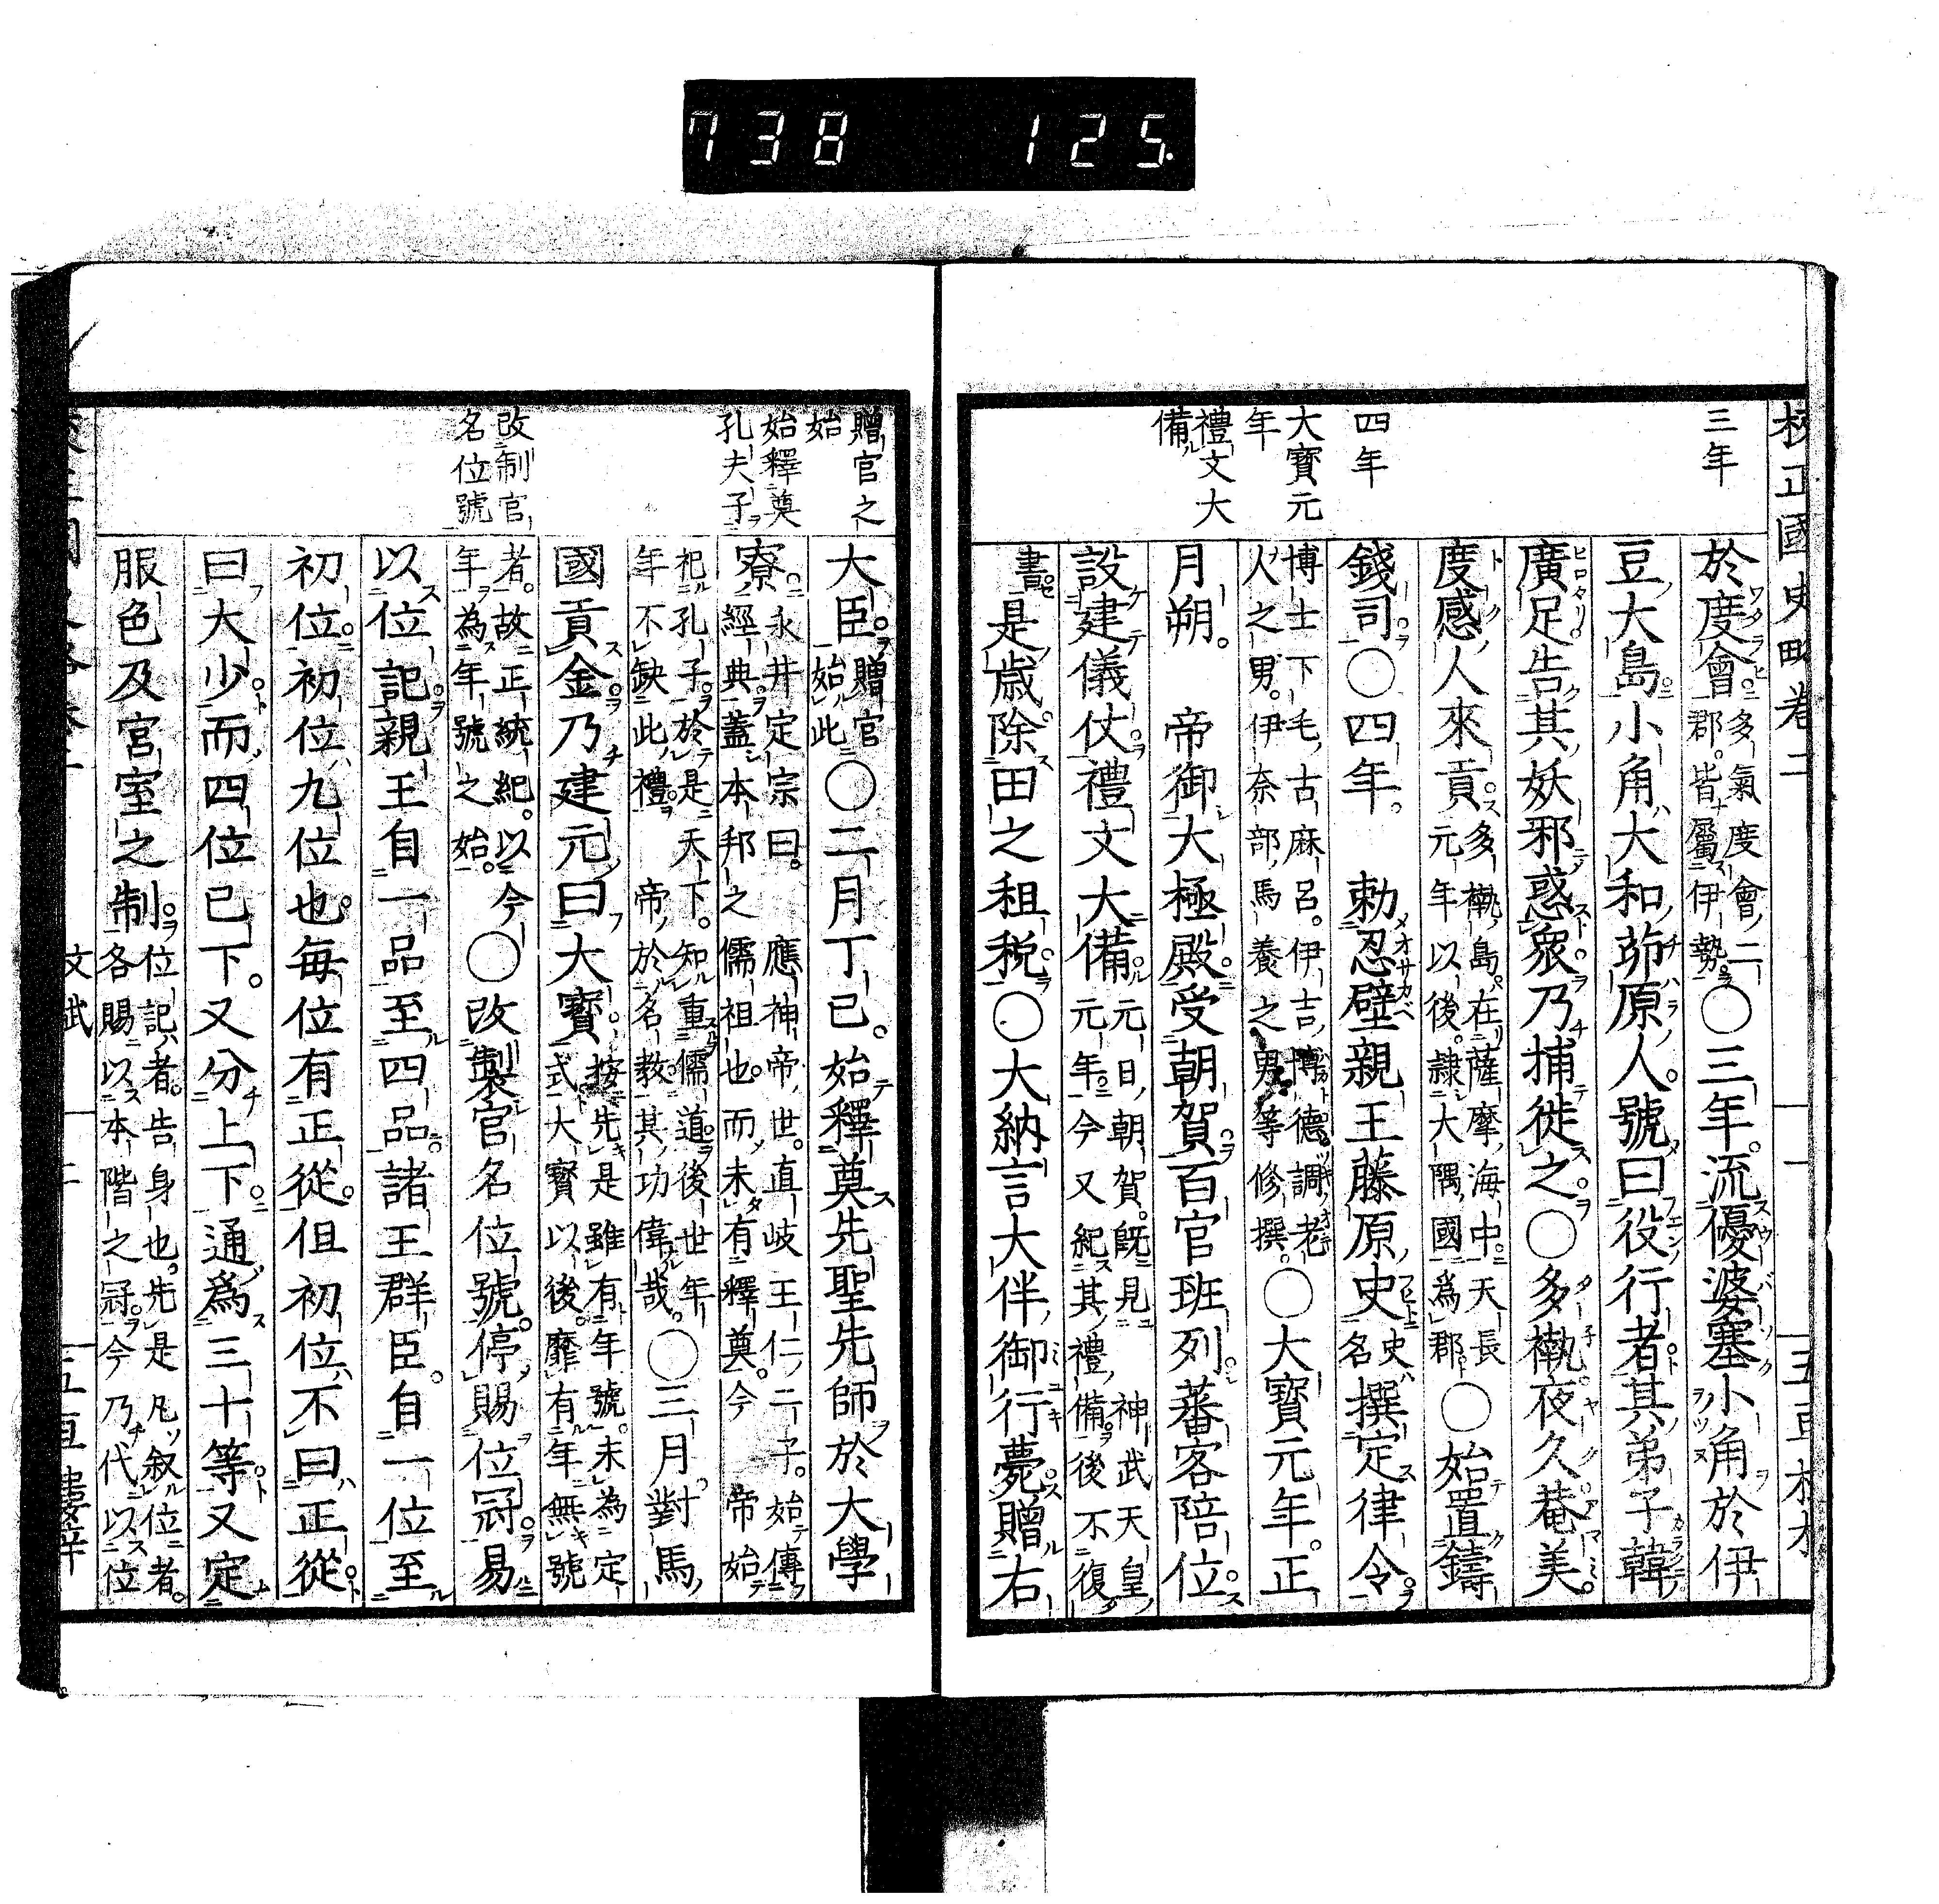 738 125
校正國史略卷二
三年
四年
大寶元
年
禮文大
備
於度會多氣度會二郡皆屬伊勢○三年。流優婆塞小角於伊
豆大島小角大和茆原人號曰役行者其弟子韓
廣足告其妖邪惑衆乃捕徙之○多褹夜久菴美
度感人來貢多褹島。在薩摩海中天長元年以後。隷大隅國爲郡○始置鑄
錢司○四年。 勅忍壁親王藤原史史名撰定律令
博士下毛古麻呂。伊吉博德調老人之男。伊奈部馬養之男等修撰。○大寶元年。正
月朔。 帝御大極殿受朝賀百官班列蕃客陪位
設建儀仗禮文大備元日朝賀。既見神武天皇元年今又紀其禮備後不復
書是歲除田之租税○大納言大伴御行薨贈右
贈官之
始
始釋奠
孔夫子
改制官
名位號
大臣贈官始此○二月丁已。始釋奠先聖先師於大學
寮永井定宗曰。應神帝世。直岐王仁二子。始傳經典蓋本邦之儒祖也而未有釋奠。今帝始
祀孔子於是天下。知重儒道後世年年不缺此禮 帝於名教其功偉哉。○三月。對馬
國貢金乃建元曰大寶按先是雖有年號。未為定式大寶以後。靡有年無號
者。故正統紀。以今年為年號之始。○改製官名位號。停賜位冠易
以位記親王自一品至四品諸王群臣。自一位至
初位初位九位也每位有正從。但初位不曰正從
曰大少而四位已下。又分上下通爲三十等又定
服色及宮室之制位記者。告身也。先是凡叙位者。各賜以本階之冠今乃代以位
文武